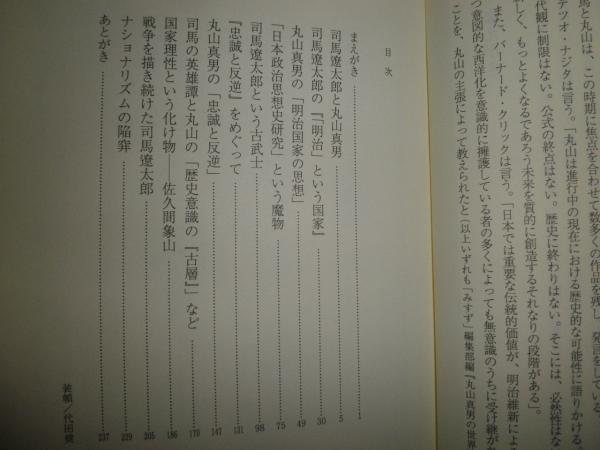 馬と丸山は、この時期に焦点を合わせて数多くの作品を残し、発言をしている。
テツオ・ナジタは言う。「丸山は進行中の現在における歴史的な可能性に語りかける。
代観に制限はない。公式の終点はない。歴史に終わりはない。そこには、必然性はな
しく、もっとよくなるであろう未来を質的に創造するそれなりの段階がある」。
また、バーナード・クリックは言う。「日本では重要な伝統的価値が、明治維新による
つ意図的な西洋化を意識的に擁護している者の多くによっても無意識のうちに受け継が
ことを、丸山の主張によって教えられたと(以上いずれも「みすず」編集部編『丸山真男の世界
目次
まえがき
司馬遼太郎と丸山真男 5
司馬遼太郎の『「明治」という国家』 30
丸山真男の「明治国家の思想」 49
『日本政治思想史研究』という魔物 75
司馬遼太郎という古武士 98
『忠誠と反逆』をめぐって 131
丸山真男の「忠誠と反逆」 147
司馬の英雄譚と丸山の「歴史意識の『古層』」など 170
国家理性という化け物――佐久間象山 186
戦争を描き続けた司馬遼太郎 205
ナショナリズムの陥穽 229
あとがき 237
装幀/代田奨